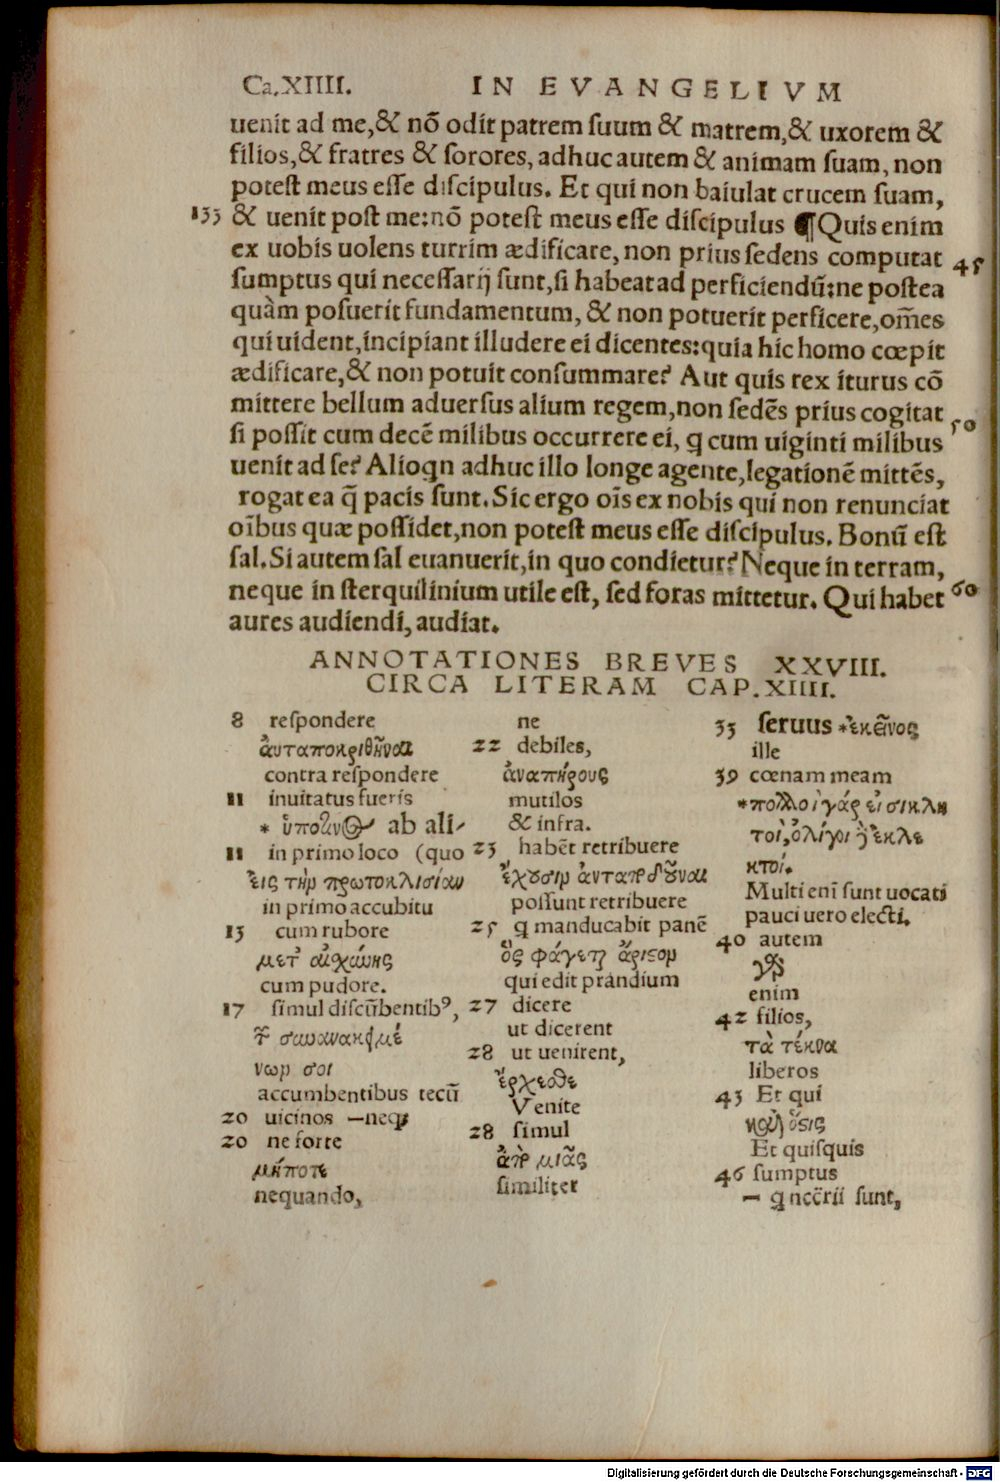 Ca.XIIII. IN EVANGELIVM
uenit ad me,& nõ odit patrem suum & matrem,& uxorem &
filios,& fratres & sorores, adhuc autem & animam suam, non
potest meus esse discipulus. Et qui non baiulat crucem suam,
133 & uenit post me:nõ potest meus esse discipulus ¶Quis enim
ex uobis uolens turrim ædificare, non prius sedens computat 45
sumptus qui necessarij sunt,si habeat ad perficiendũ:ne postea
quàm posuerit fundamentum, & non potuerit perficere,om̃es
qui uident,incipiant illudere ei dicentes:quia hic homo cœpit
ædificare,& non potuit consummare? Aut quis rex iturus cõ
mittere bellum aduersus alium regem,non sedẽs prius cogitat 50
si possit cum decẽ milibus occurrere ei, q cum uiginti milibus
uenit ad se? Alioqn adhuc illo longe agente,legationẽ mittẽs,
rogat ea q̃ pacis sunt.Sic ergo oĩs ex nobis qui non renunciat
oĩbus quæ possidet,non potest meus esse discipulus. Bonũ est
sal.Si autem sal euanuerit,in quo condietur? Neque in terram,
neque in sterquilinium utile est, sed foras mittetur. Qui habet 60
aures audiendi, audiat.
ANNOTATIONES BREVES XXVIII.
CIRCA LITERAM CAP.XIIII.
8 respondere
ἀνταποκριθῆναι
contra respondere
11 inuitatus fueris
* ὑπό τινος ab ali-
11 in primo loco (quo
εἰς τὴν πρωτοκλισίαν
in primo accubitu
13 cum rubore
μετ' αἰσχύνης
cum pudore.
17 simul discũbentibꝰ,
τῶν συνανακειμέ
νων σοι
accumbentibus tecũ
20 uicinos —neqꝫ
20 ne forte
μήποτε
nequando,
ne
22 debiles,
ἀναπήρους
mutilos
& infra.
23 habẽt retribuere
ἔχουσιν ἀνταποδοῦναι
possunt retribuere
25 q manducabit panẽ
ὃς φάγεται ἄριστον
qui edit prandium
27 dicere
ut dicerent
28 ut uenirent,
ἔρχεσθε
Venite
28 simul
ἀπὸ μιᾶς
similiter
33 seruus *ἐκεῖνος
ille
39 cœnam meam
*πολλοὶ γάρ εἰσι κλη
τοὶ, ὀλίγοι δὲ ἐκλε
κτοί.
Multi enĩ sunt uocati
pauci uero electi.
40 autem
γὰρ
enim
42 filios,
τὰ τέκνα
liberos
43 Et qui
καὶ ὅστις
Et quisquis
46 sumptus
— q ncc̃rii sunt,
Digitalisierung gefördert durch die Deutsche Forschungsgemeinschaft - DFG